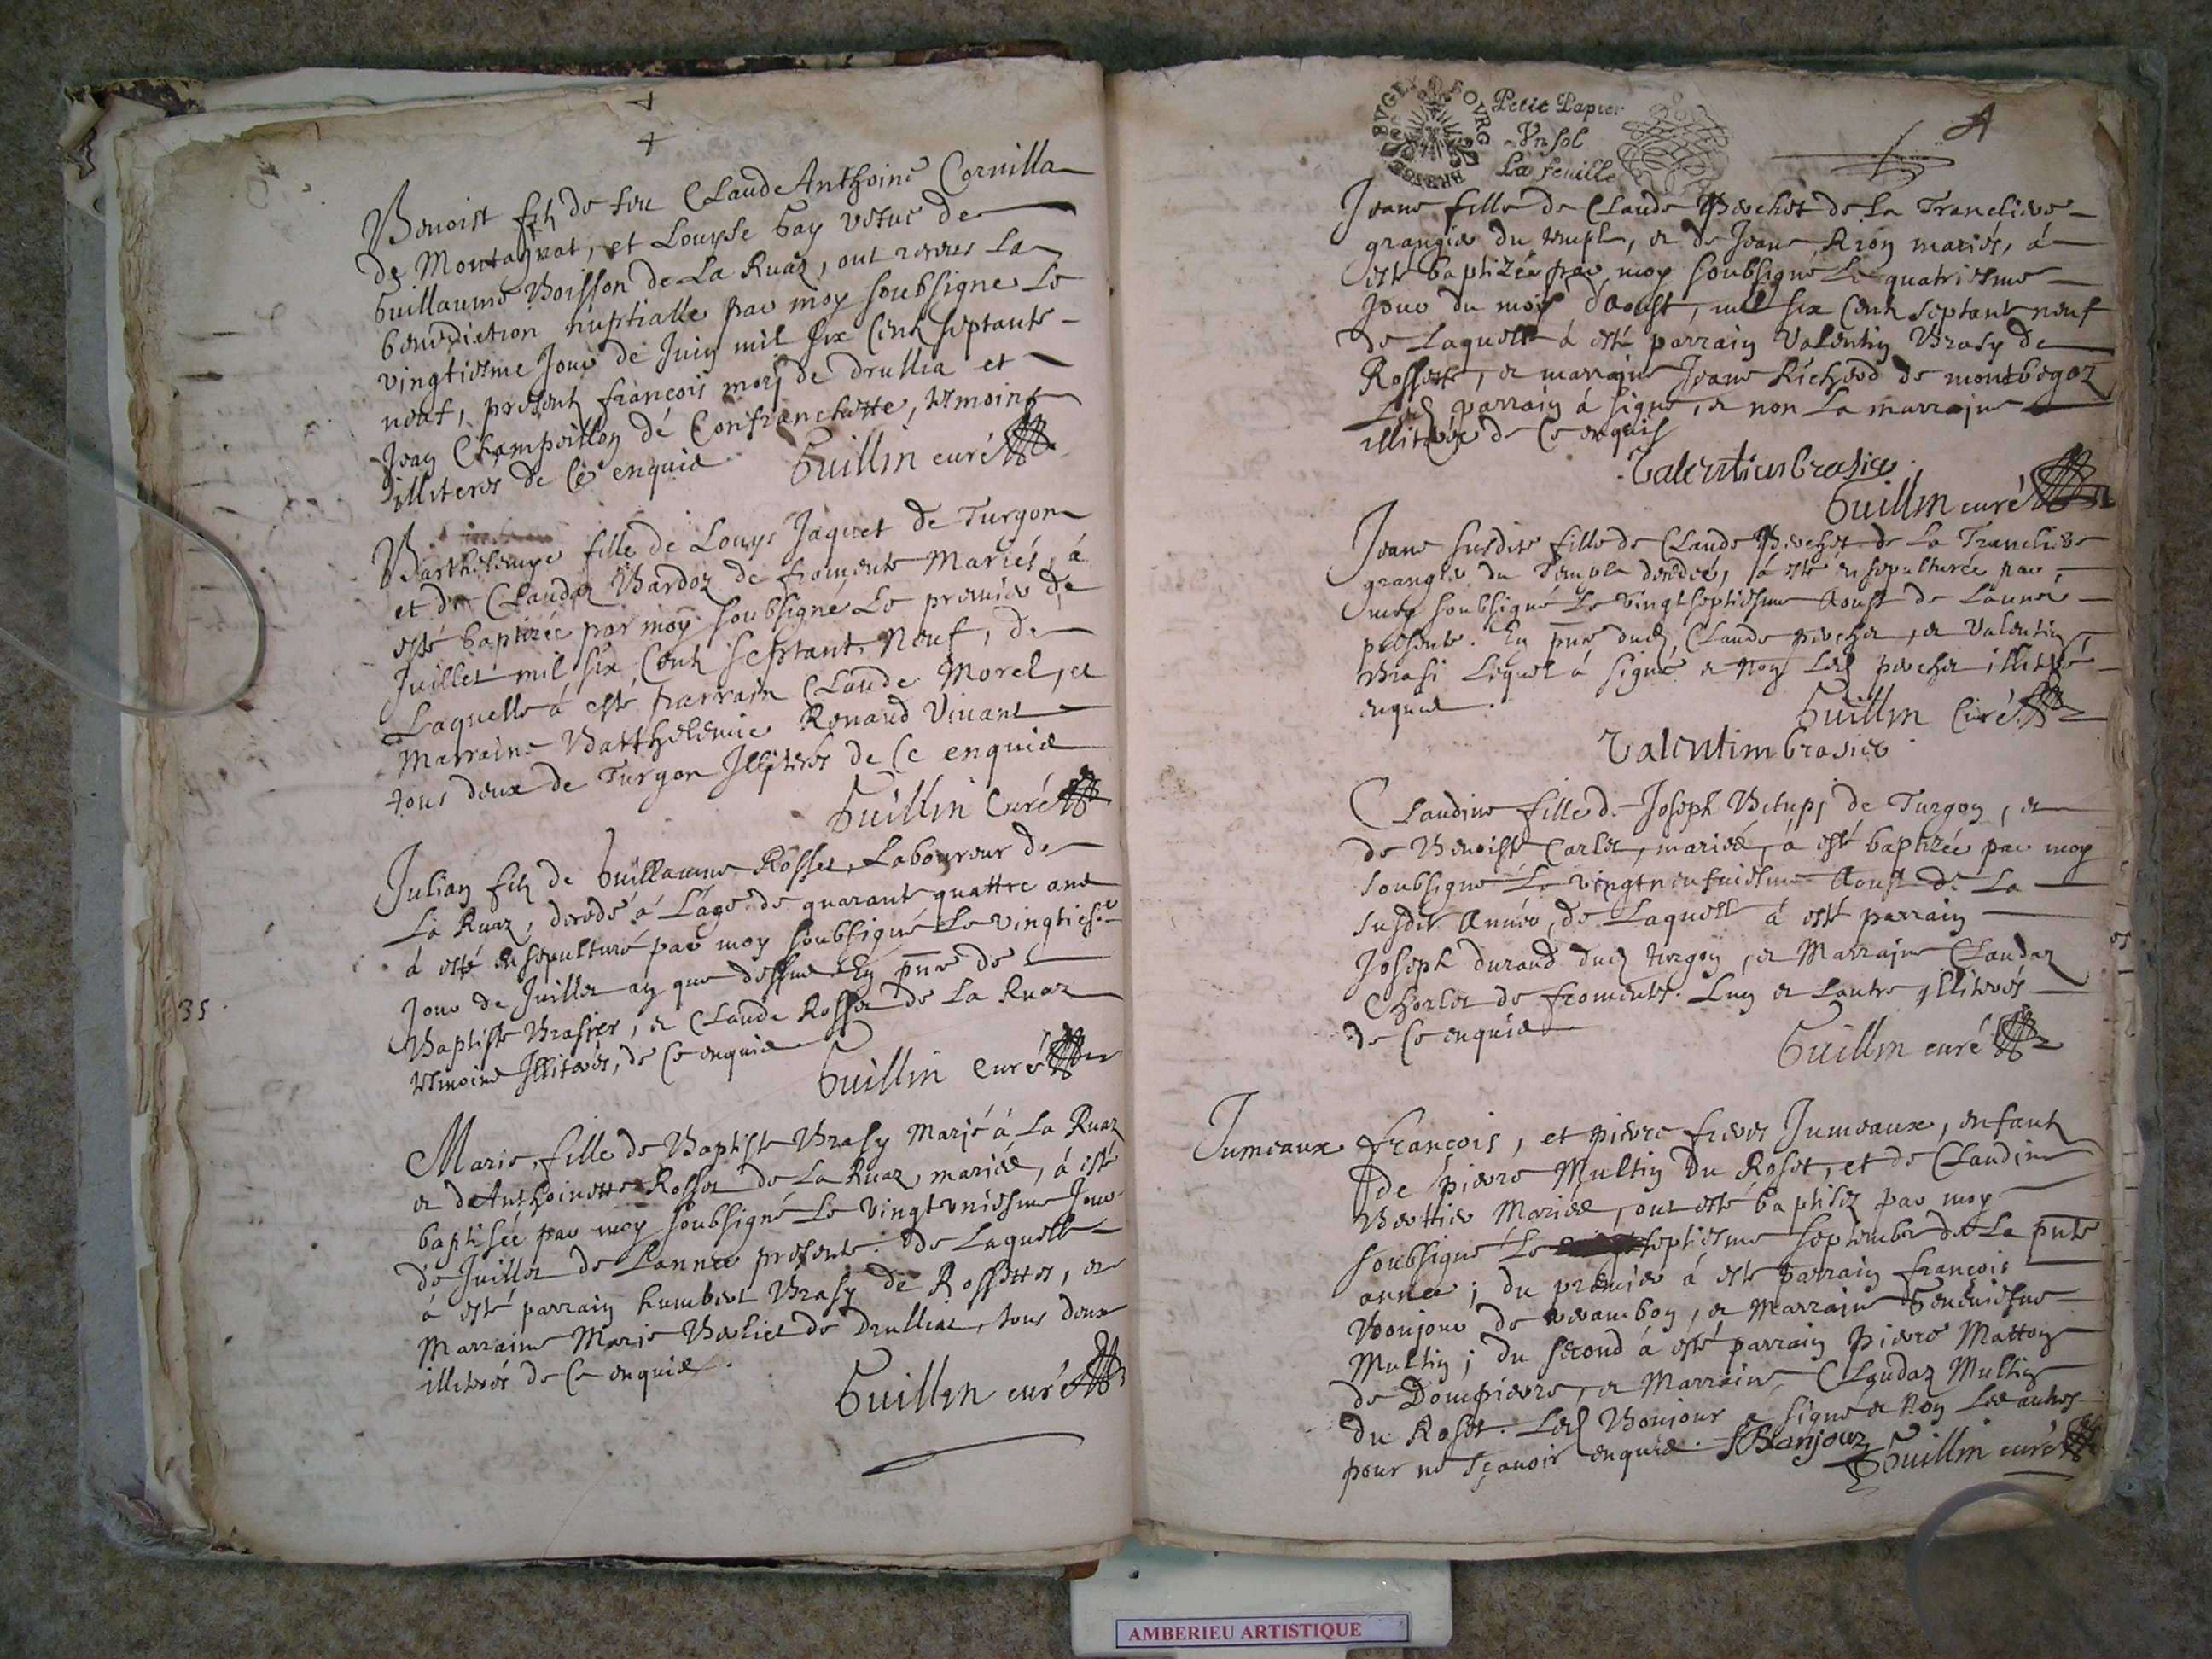 Benoist filz de feu Claude Anthoine Cornilla
de Montagnat, et Louyse Gay vefue de
Guillaume Boisson de La Ruaz, ont receus La
benediction nuptialle par moy soubsigne Le
vingtiesme Jour de Juin mil six Centz septante
neuf, presentz francois morj de drullia et
Jean Champeillon de Confranchette, temoins
illiteres de Ce enquis Guillin curé
Barthelemye fille de Louys Jaquet de Turgon
et de Claudaz Bardoz de froment Mariés, á
esté baptizée par moy soubsigné Le premier de
Juillet mil six Centz septante Neuf, de
Laquelle á esté parrain Claude Morel, et
Marraine Barthelemie Renaud Vivant
tous deux de Turgon Illiterés de Ce enquis
Guillin Curé
Julian filz de Guillaume Rosset, Laboureur de
La Ruaz, decedé á L'age de quarante quattre ans
á esté ensepulturé par moy soubsigné Le vingties.
Jour de Juillet an que dessus En pnce de
Baptiste Brasier, et Claude Rosset de La Ruaz
temoins Illiterés, de Ce enquis
Guillin curé
35
Marie, fille de Baptiste Brasy Marjé á La Ruaz
et d'Anthoinette Rosset de La Ruaz, mariés, á esté
baptisée par moy soubsigné Le vingt uniesme Jour
de Juillet de L'annee presente. de Laquelle
á esté parrain humbert Brasy de Rossettes, et
Marraine Marie Berliet de Drulliat, tous deux
illiterés de Ce enquis.
Guillin curé
BVGEY BOVRG BRESSE
Petit Papier
Vn sol
La feuille
Jeane fille de Claude Perchet de La Trancliere
grangier du temple, et de Jeane Rion mariés, á
esté baptizée par moy soubsigné Le quatriesme
Jour du mois d'Aoust, mil six Centz septante neuf
de Laquelle á esté parrain Valentin Brasy de
Rossette, et marraine Jeane Richerd de montbegoz
Ledz parrain á signe, et non La marraine
illiterée de Ce enquis
Valentin brasier
Guillin curé
Jeane susdite fille de Claude Perchet de La Trancliere
grangier du Temple decedee, á esté ensepulturée par
moy soubsigné Le vingt septiesme Aoust de L'annee
presente. En pnce dudz Claude percher, et Valentin
Brasi Lequel á signé et Non Ledz percher illiteré
enquis.
Guillin Curé
Valentim brasier
Claudine fille de Joseph Betupj de Turgon, et
de Benoiste Carlet, mariés, á esté baptizée par moy
soubsigné Le vingt neufuiesme Aoust de La
susdite Année, de Laquelle á esté parrain
Joseph durand dudz turgon, et Marraine Claudaz
Chorlet de froments. Lun et Lautre jlliterés
de Ce enquis
Guillin curé
Jumeaux francois, et pierre freres Jumeaux, enfantz
de pierre Multin du Roset, et de Claudine
Berttier Mariés, ont esté baptisez par moy
soubsigné Le septiesme septembre de La pnte
annee; du premier á esté parrain francois
Bonjour de revambon, et Marraine Geneuiesue
Multin; du second á esté parrain Pierre Matton
de Dompierre, et Marraine Claudaz Multin
du Roset. Ledz Bonjour a signe et Non Les autres
pour ne sçauoir enquis. f Bonjour
Guillin curé
AMBERIEU ARTISTIQUE